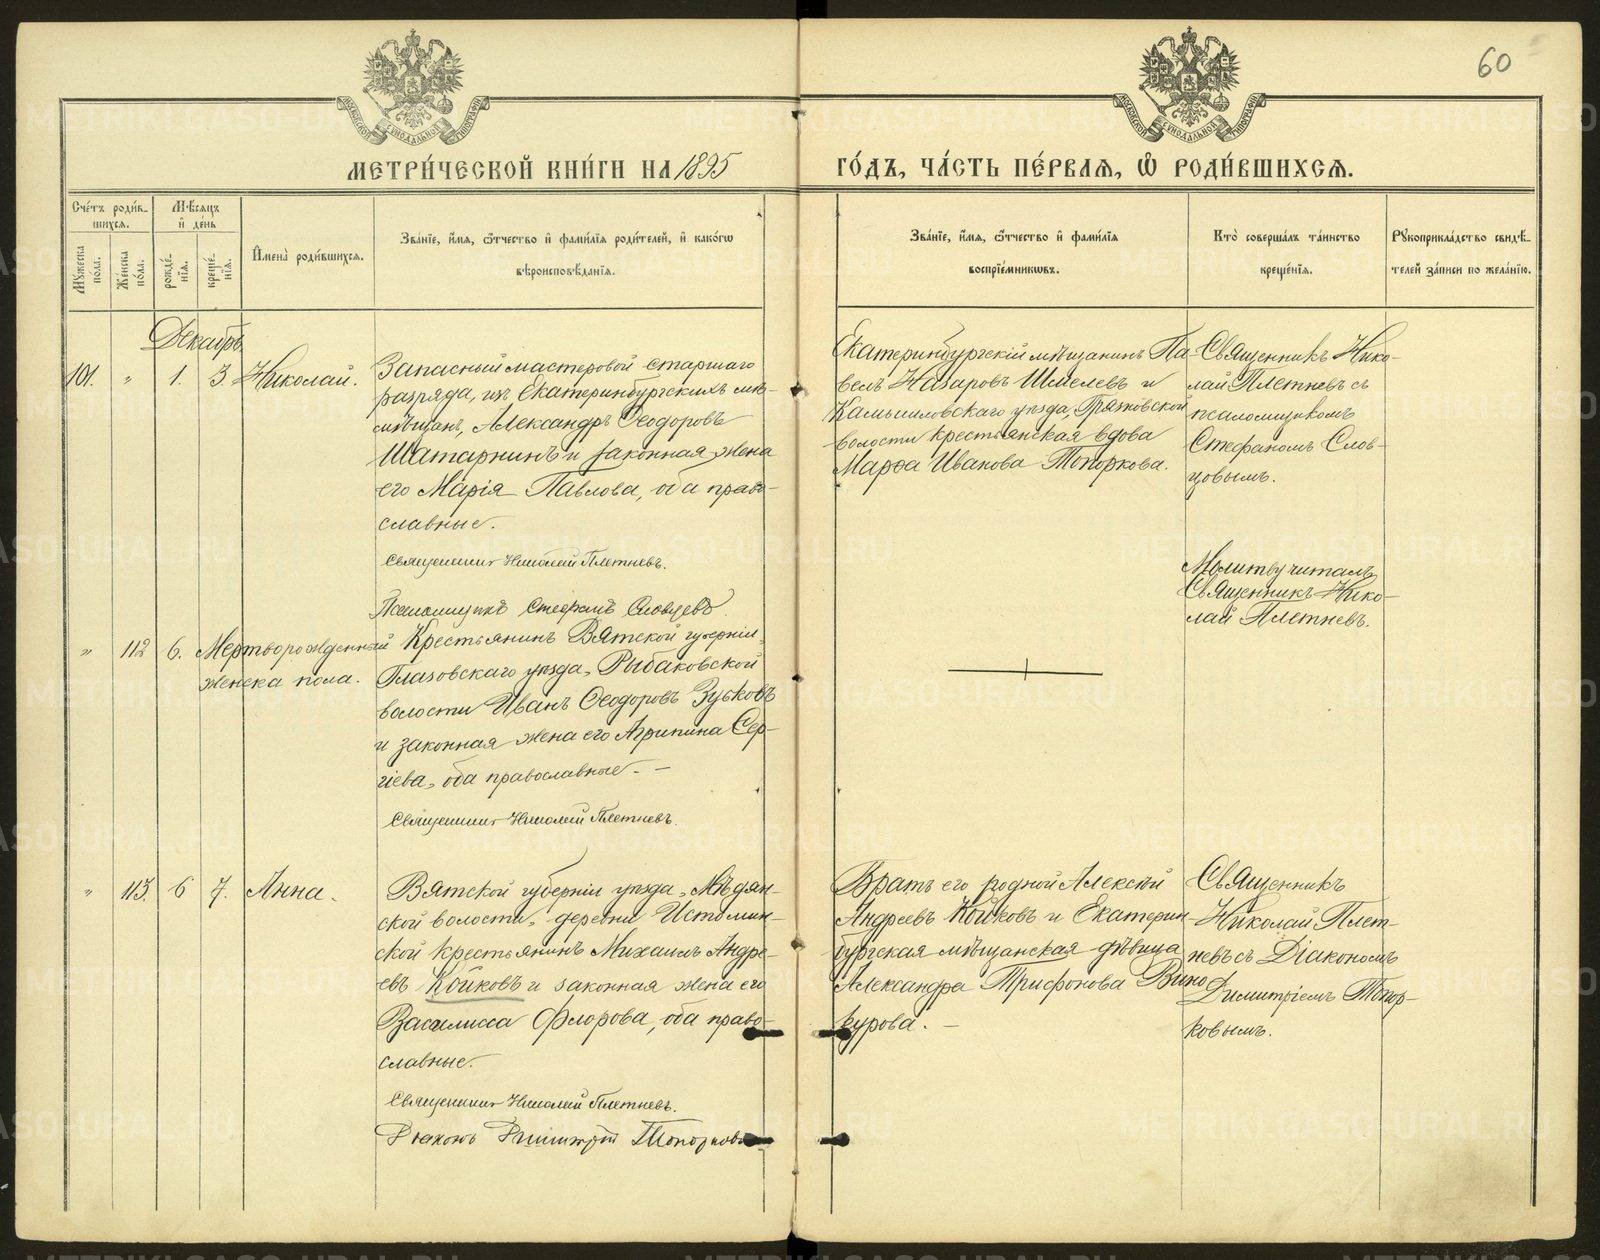 60
МЕТРИ́ЧЕСКОЙ КНИ́ГИ НА 1895 ГО́ДЪ, ЧА́СТЬ ПЕ́РВАѦ, Ѡ҆ РОДИ́ВШИХСѦ.
Сче́тъ роди́в-
шихсѧ.
Мꙋ́жеска пола.
Же́нска по́ла.
Мѣ́сѧцъ
и҆ де́нь
рожде́-
нїѧ.
креще́-
нїѧ.
И҆мена̀ роди́вшихсѧ.
Зва́нїе, и҆́мѧ, ѻ҆́тчество и҆ фами́лїѧ роди́телей, и҆ како́гѡ
вѣроисповѣ́данїѧ.
Зва́нїе, и҆́мѧ, ѻ҆́тчество и҆ фами́лїѧ
воспрїе́мникѡвъ.
Кто̀ соверша́лъ та́инство
креще́нїѧ.
Рꙋкоприкла́дство свидѣ́-
телей за́писи по жела́нїю.
Декабрь
101. " 1. 3. Николай.
Запасный мастеровой старшаго
разряда, изъ Екатеринбургскихъ мѣ-
щанъ, Александръ Ѳеодоровъ
Шатарнинъ и законная жена
его Марія Павлова, оба право-
славные.
Священникъ Николай Плетневъ.
Псаломщикъ Стефанъ Словцевъ
Екатеринбургскій мѣщанинъ Па-
велъ Назаровъ Шмелевъ и
Камышловскаго уѣзда, Грязновской
волости крестьянская вдова
Марѳа Иванова Топоркова.
Священникъ Нико-
лай Плетневъ съ
псаломщикомъ
Стефаномъ Слов-
цовымъ.
" 112 6. Мертворожденный
женска пола.
Крестьянинъ Вятской губерніи,
Глазовскаго уѣзда, Рыбаковской
волости Иванъ Ѳеодоровъ Зубковъ
и законная жена его Агрипина Сер-
гіева, оба православные. –
Священникъ Николай Плетневъ.
Молитву читалъ
Священникъ Нико-
лай Плетневъ.
" 113. 6 7. Анна.
Вятской губерніи уѣзда, Мѣдян-
ской волости, деревни Истомин-
ской крестьянинъ Михаилъ Андре-
евъ Койковъ и законная жена его
Василисса Флорова, оба право-
славные.
Священникъ Николай Плетневъ.
Діаконъ Димитрій Топорковъ
Братъ его родной Алексѣй
Андреевъ Койковъ и Екатерин-
бургская мѣщанская дѣвица
Александра Трифонова Вино-
курова. –
Священникъ
Николай Плет-
невъ съ Діакономъ
Димитріемъ Топор-
ковымъ.
METRIKI.GASO-URAL.RU